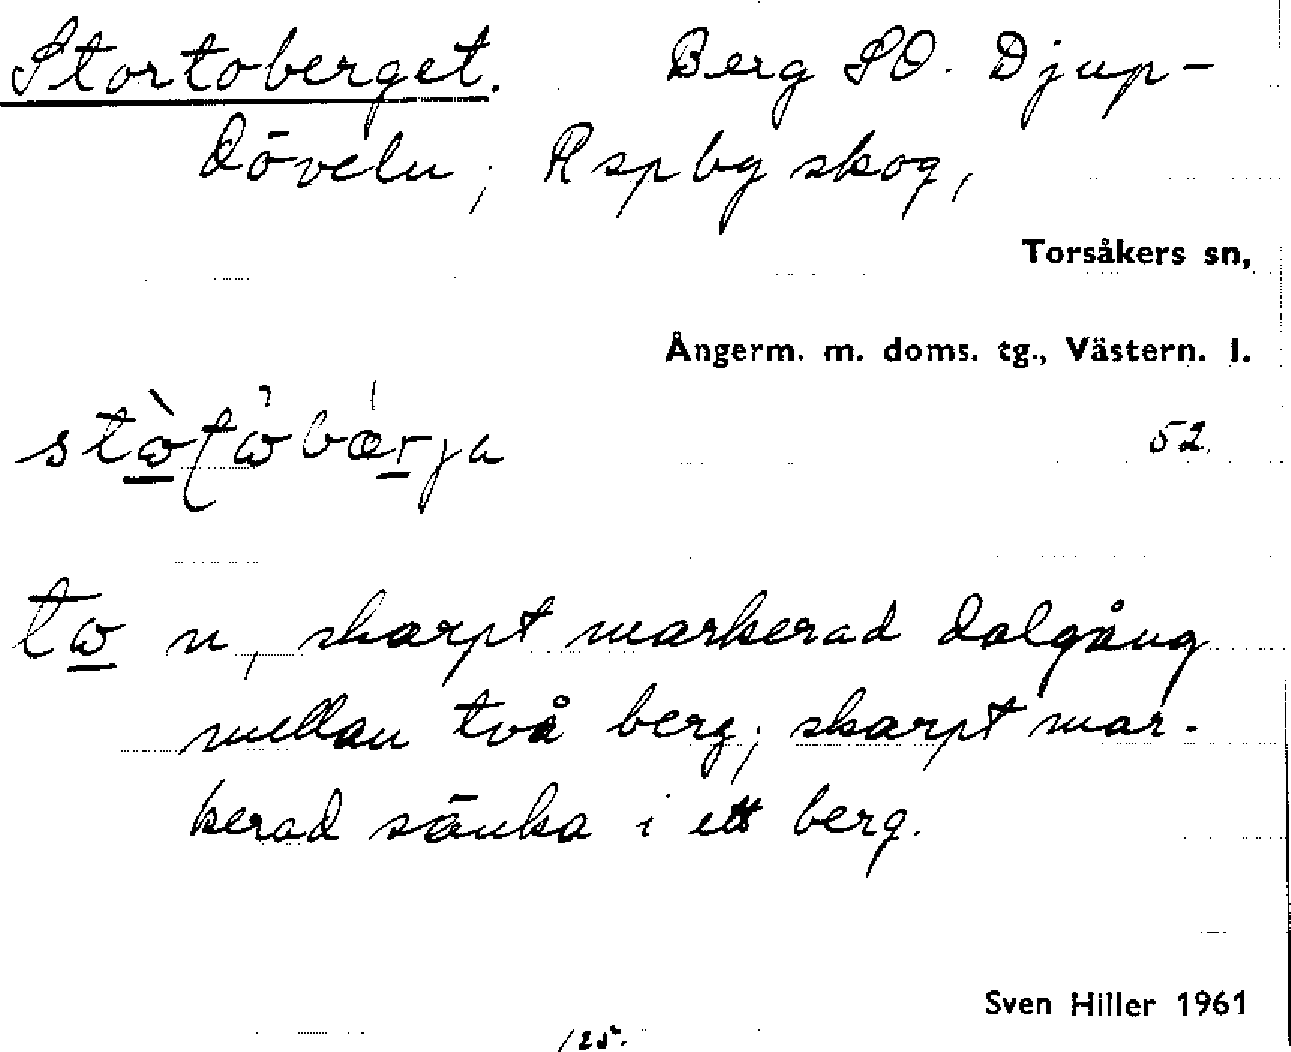 Stortoberget. Berg SO. Djup-
döveln; Aspbyskog,
Torsåkers sn,
Ångerm. m. doms. tg., Västern. l.
52.
tω n, skarpt markerad dalgång
mellan två berg; skarpt mar-
kerad sänka i ett berg.
Sven Hiller 1961